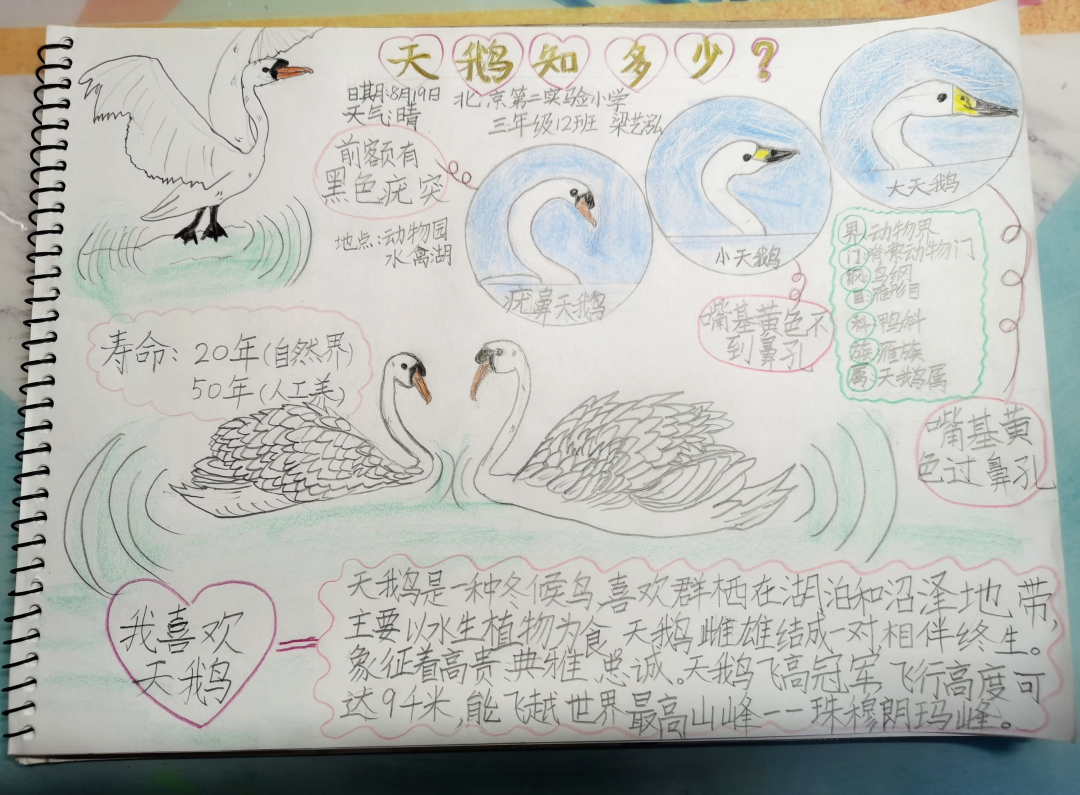 天鹅知多少？
日期:8月19日
天气:晴
北京第二实验小学
三年级12班 梁艺泓
前额有
黑色疣突
地点:动物园
水禽湖
疣鼻天鹅
小天鹅
大天鹅
嘴基黄色不
到鼻孔
界:动物界
门:脊索动物门
纲:鸟纲
目:雁形目
科:鸭科
族:雁族
属:天鹅属
嘴基黄
色过鼻孔
寿命:20年(自然界)
50年(人工养)
我喜欢
天鹅
天鹅是一种冬候鸟,喜欢群栖在湖泊和沼泽地带,
主要以水生植物为食。天鹅雌雄结成一对相伴终生。
象征着高贵,典雅,忠诚。天鹅飞高冠军,飞行高度可
达9千米,能飞越世界最高山峰——珠穆朗玛峰。